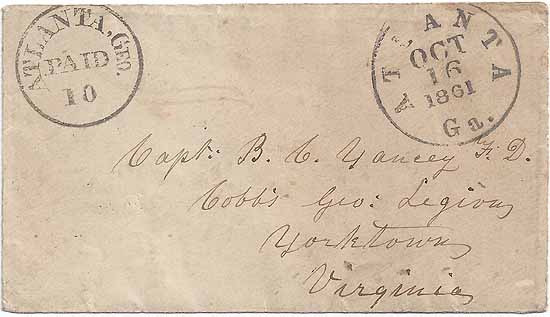 ATLANTA, GEO.
PAID
10
ATLANTA
OCT
16
1861
Ga.
Capt. B. C. Yancey F. D.
Cobb's Geo: Legion
Yorktown
Virginia